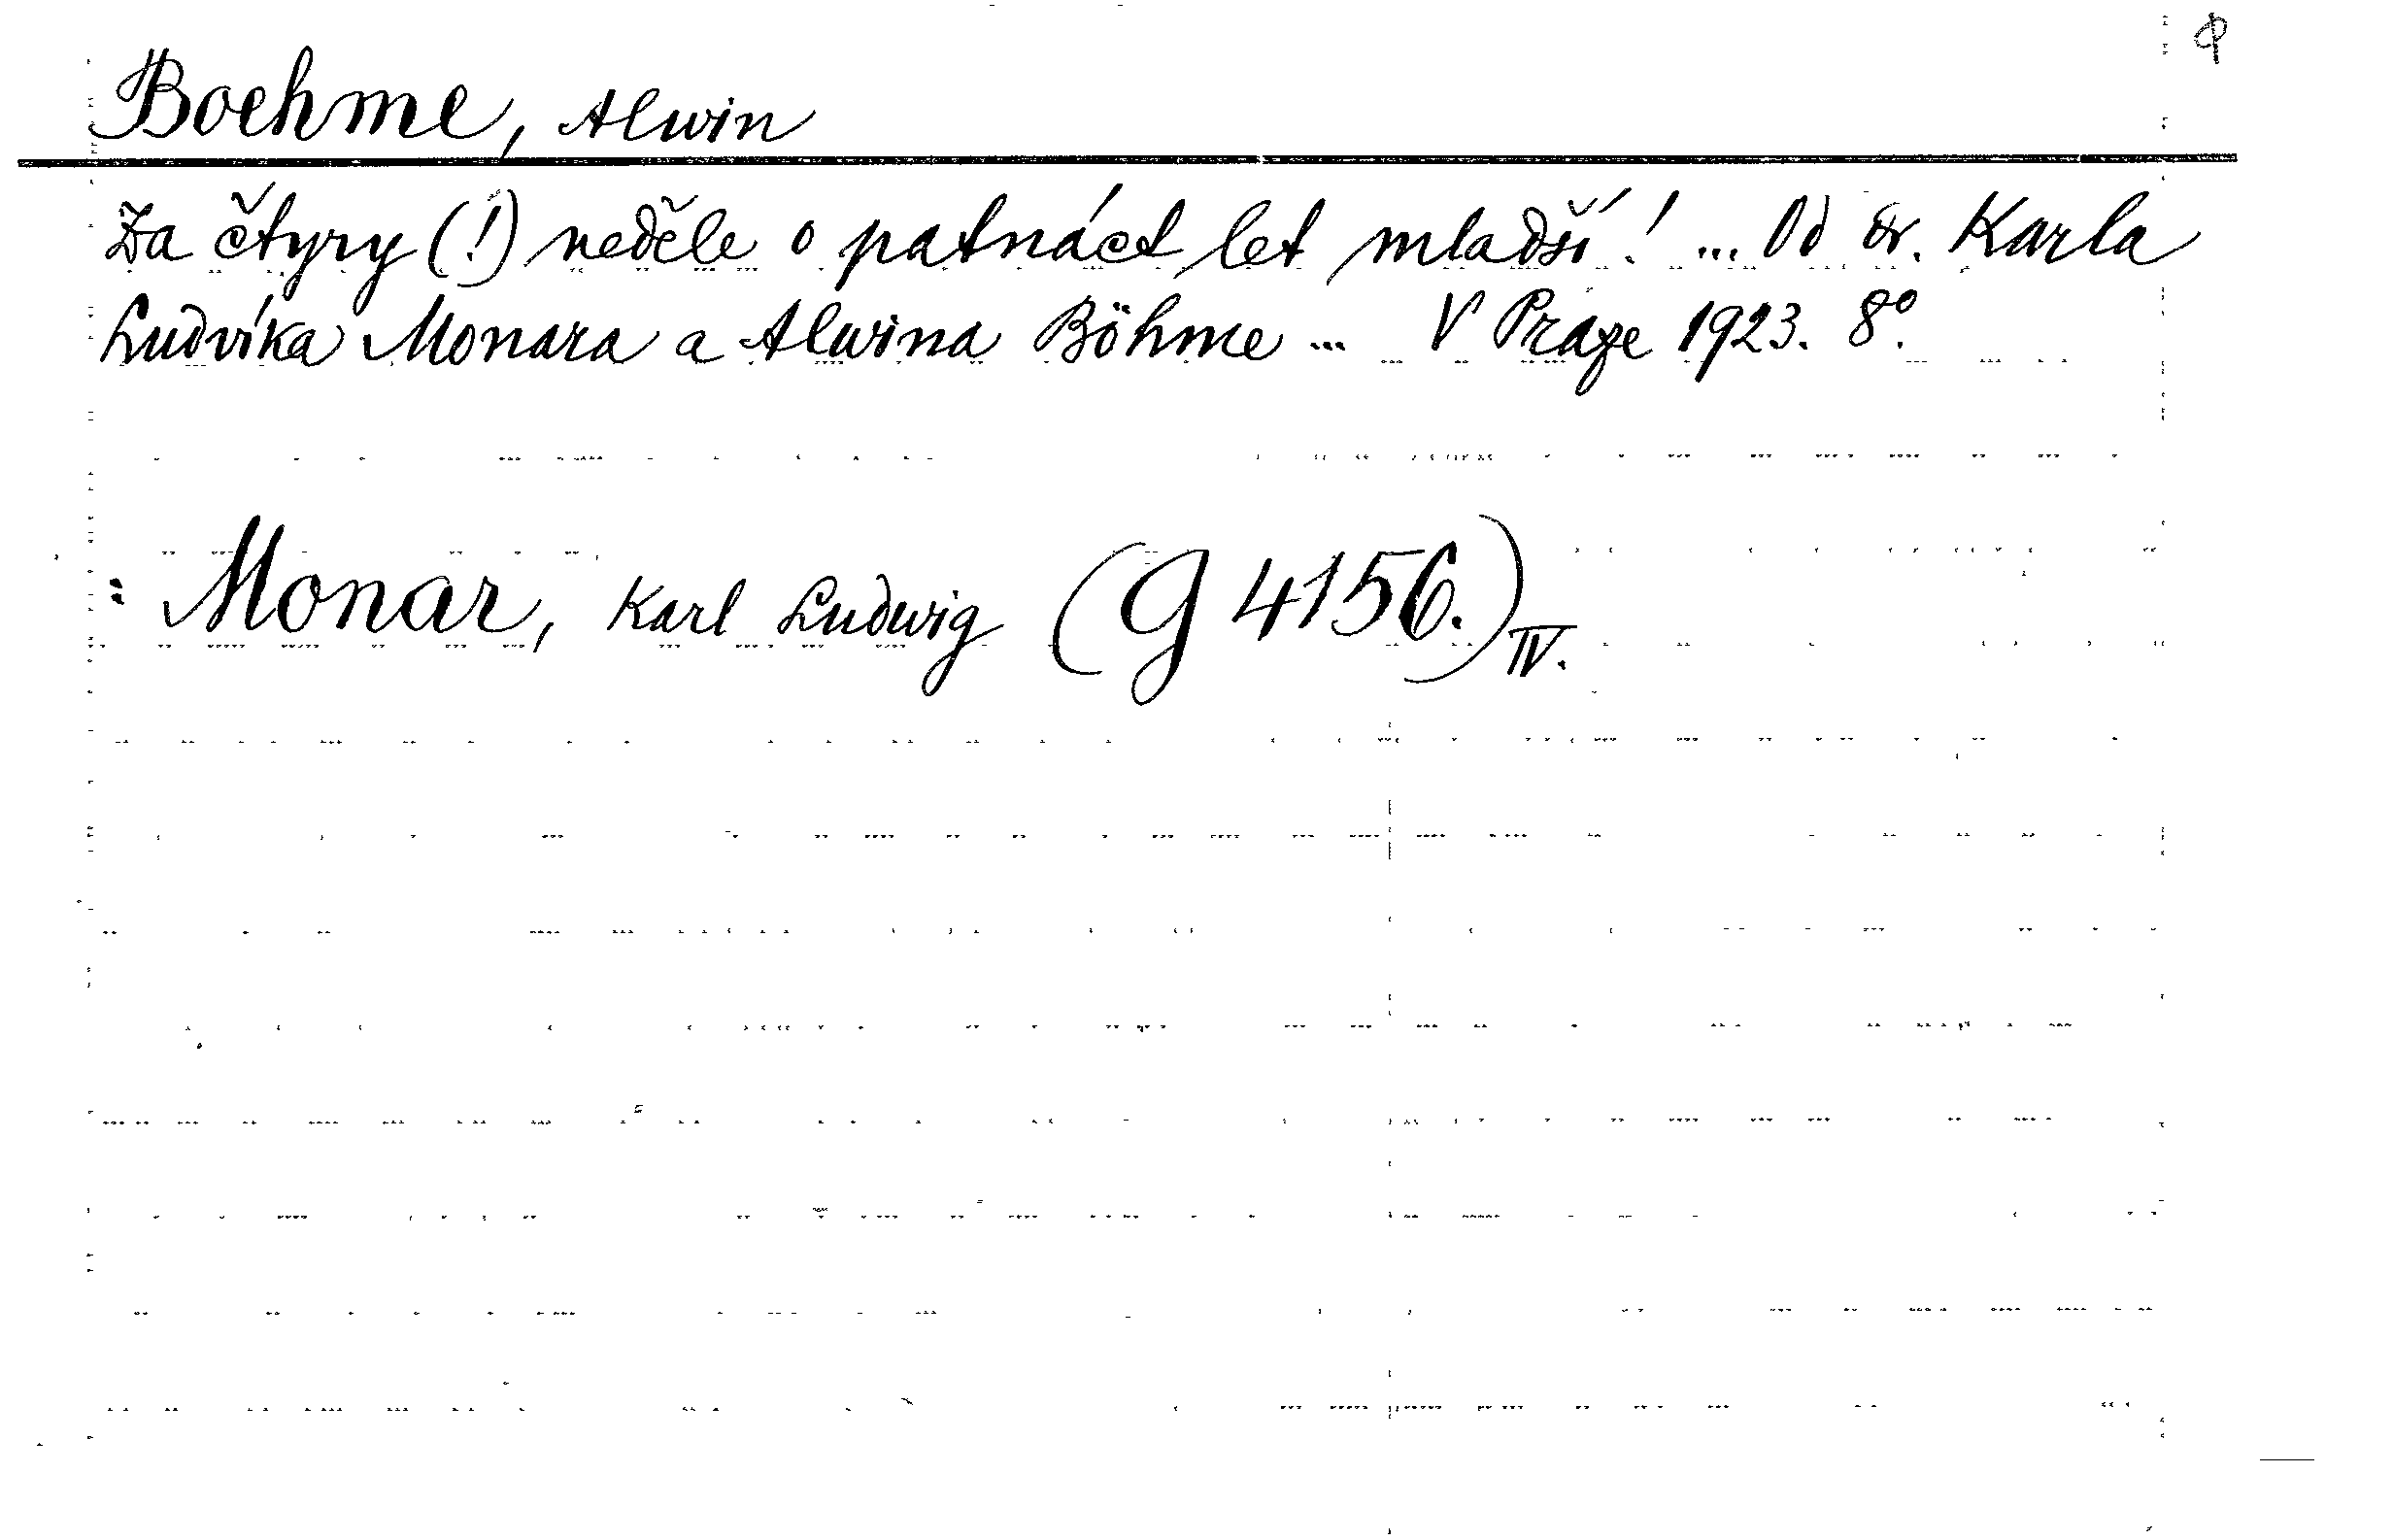 Boehme, Alwin
Za čtyry (!) neděle o patnáct let mladší! ... Od dr. Karla
Ludvíka Monara a Alwina Böhme ... V Praze 1923. 8°.
: Monar, Karl Ludwig (G 4156.) IV.